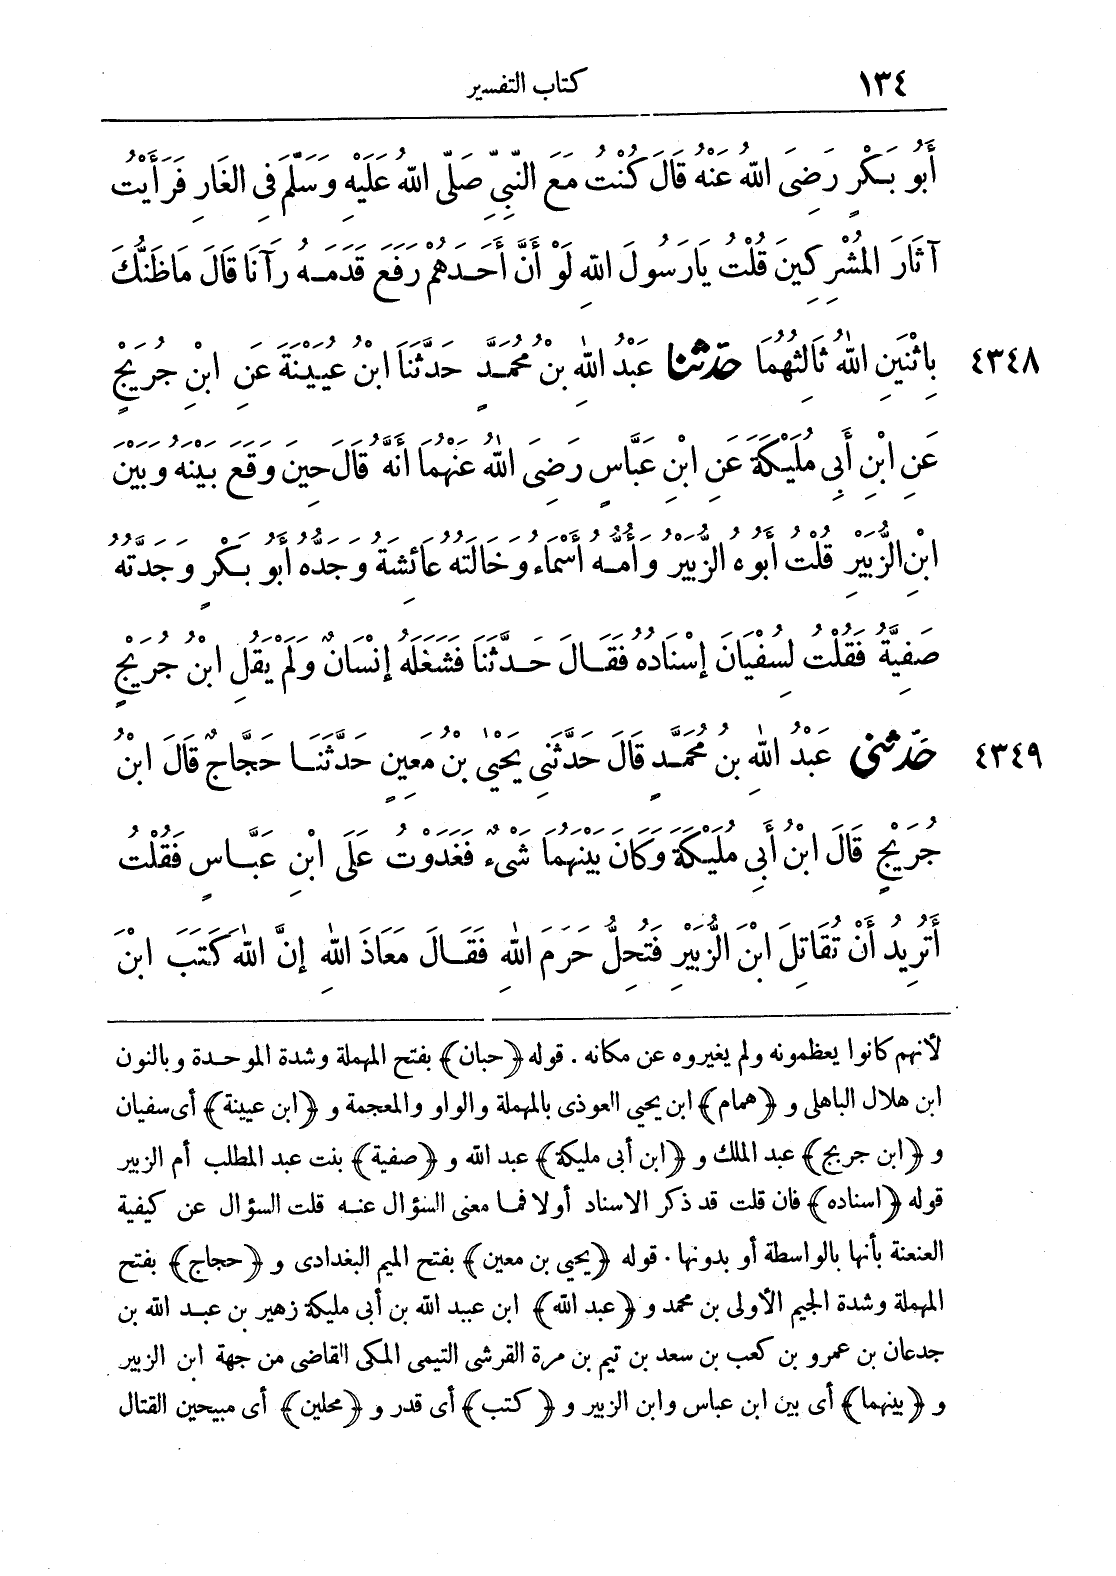 ١٣٤ كتاب التفسير
أَبُو بَكْرٍ رَضِىَ اللهُ عَنْهُ قَالَ كُنْتُ مَعَ النَّبِيِّ صَلَّى اللهُ عَلَيْهِ وَسَلَّمَ فِى الغَارِ فَرَأَيْتُ
آثَارَ المُشْرِكِينَ قُلْتُ يَارَسُولَ اللهِ لَوْ أَنَّ أَحَدَهُمْ رَفَعَ قَدَمَهُ رَآنَا قَالَ مَاظَنُّكَ
٤٣٤٨ بِاثْنَيْنِ اللهُ ثَالِثُهُمَا حَدَّثَنَا عَبْدُ اللهِ بْنُ مُحَمَّدٍ حَدَّثَنَا ابْنُ عُيَيْنَةَ عَنِ ابْنِ جُرَيْجٍ
عَنِ ابْنِ أَبِى مُلَيْكَةَ عَنِ ابْنِ عَبَّاسٍ رَضِىَ اللهُ عَنْهُمَا أَنَّهُ قَالَ حِينَ وَقَعَ بَيْنَهُ وَبَيْنَ
ابْنِ الزُّبَيْرِ قُلْتُ أَبُوهُ الزُّبَيْرُ وَأُمُّهُ أَسْمَاءُ وَخَالَتُهُ عَائِشَةُ وَجَدُّهُ أَبُو بَكْرٍ وَجَدَّتُهُ
صَفِيَّةُ فَقُلْتُ لِسُفْيَانَ إِسْنَادُهُ فَقَالَ حَدَّثَنَا فَشَغَلَهُ إِنْسَانٌ وَلَمْ يَقُلِ ابْنُ جُرَيْجٍ
٤٣٤٩ حَدَّثَنِى عَبْدُ اللهِ بْنُ مُحَمَّدٍ قَالَ حَدَّثَنِى يَحْيَى بْنُ مَعِينٍ حَدَّثَنَا حَجَّاجٌ قَالَ ابْنُ
جُرَيْجٍ قَالَ ابْنُ أَبِى مُلَيْكَةَ وَكَانَ بَيْنَهُمَا شَىْءٌ فَغَدَوْتُ عَلَى ابْنِ عَبَّاسٍ فَقُلْتُ
أَتُرِيدُ أَنْ تُقَاتِلَ ابْنَ الزُّبَيْرِ فَتُحِلُّ حَرَمَ اللهِ فَقَالَ مَعَاذَ اللهِ إِنَّ اللهَ كَتَبَ ابْنَ
لأنهم كانوا يعظمونه ولم يغيروه عن مكانه . قوله ﴿حبان﴾ بفتح المهملة وشدة الموحدة وبالنون
ابن هلال الباهلى و ﴿همام﴾ ابن يحيى العوذى بالمهملة والواو والمعجمة و ﴿ابن عيينة﴾ أى سفيان
و ﴿ابن جريج﴾ عبد الملك و ﴿ابن أبى مليكة﴾ عبد الله و ﴿صفية﴾ بنت عبد المطلب أم الزبير
قوله ﴿اسناده﴾ فان قلت قد ذكر الاسناد أولا فما معنى السؤال عنه قلت السؤال عن كيفية
العنعنة بأنها بالواسطة أو بدونها . قوله ﴿يحيى بن معين﴾ بفتح الميم البغدادى و ﴿حجاج﴾ بفتح
المهملة وشدة الجيم الأولى بن محمد و ﴿عبد الله﴾ ابن عبيد الله بن أبى مليكة زهير بن عبد الله بن
جدعان بن عمرو بن كعب بن سعد بن تيم بن مرة القرشى التيمى المكى القاضى من جهة ابن الزبير
و ﴿بينهما﴾ أى بين ابن عباس وابن الزبير و ﴿كتب﴾ أى قدر و ﴿محلين﴾ أى مبيحين القتال